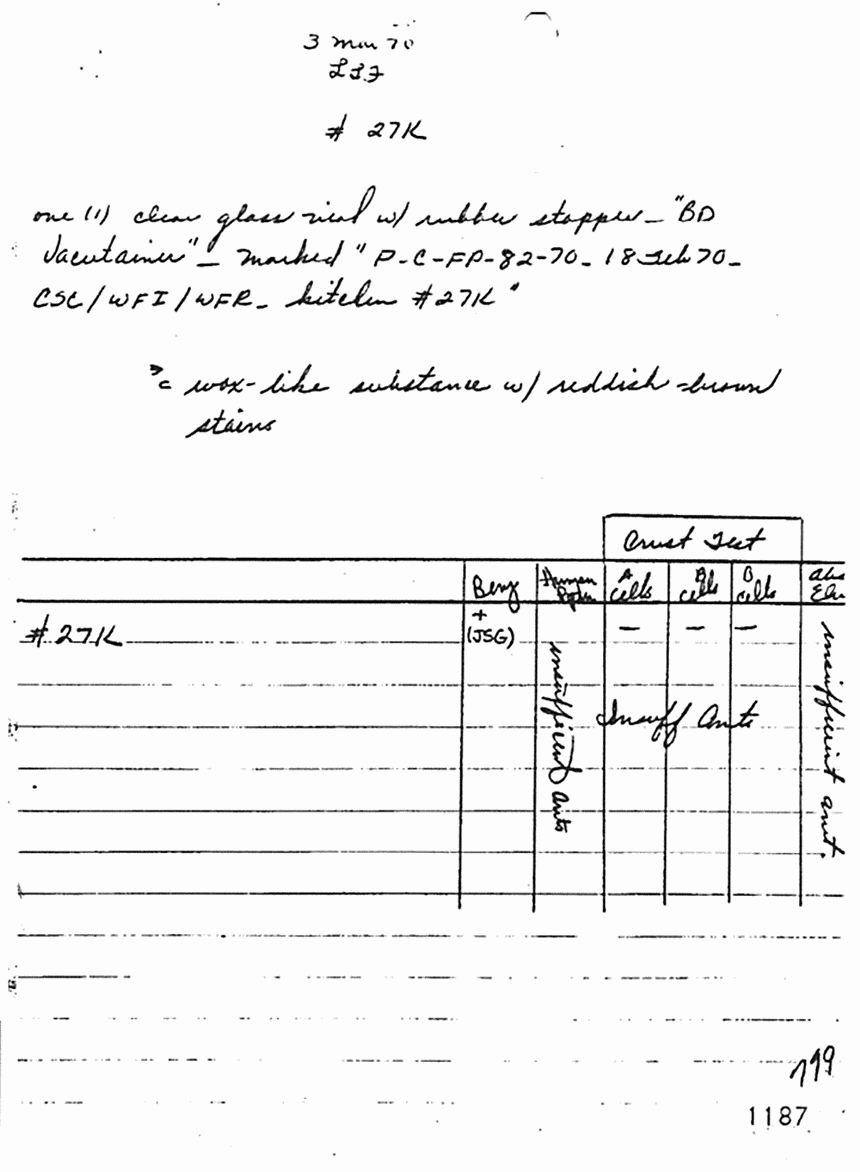 3 Mar 70
LLF
# 27K
one (1) clear glass vial w/ rubber stopper - "BD
Vacutainer" - marked "P-C-FP-82-70 - 18 Feb 70 -
CSC/WFI/WFR - kitchen #27K"
wax-like substance w/ reddish-brown
stains
Crust Test
Benz
Human
A cells
B cells
O cells
Abs
# 27K
+
(JSG)
— — —
insufficient amt
Insuff Amt
insufficient amt.
1187